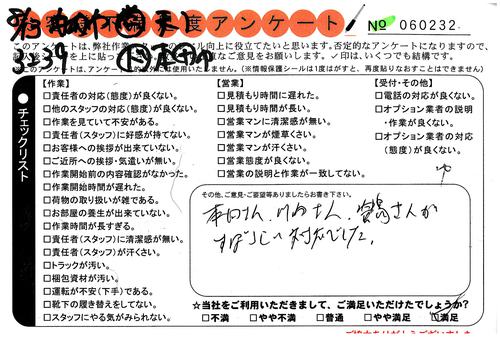 お客様不満足度アンケート
№ 060232
このアンケートは、弊社作業・サービスのレベル向上に役立てたいと思います。否定的なアンケートになりますので、
✓印は、いくつでも結構です。
(※情報保護シールは1度はがすと、再度貼りなおすことはできません)
3239
チェックリスト
【作業】
□責任者の対応(態度)が良くない。
□他のスタッフの対応(態度)が良くない。
□作業を見ていて不安がある。
□責任者(スタッフ)に好感が持てない。
□お客様への挨拶が出来ていない。
□ご近所への挨拶・気遣いが無い。
□作業開始前の内容確認がなかった。
□作業開始時間が遅れた。
□荷物の取り扱いが雑である。
□お部屋の養生が出来ていない。
□作業時間が長すぎる。
□責任者(スタッフ)に清潔感が無い。
□責任者(スタッフ)が汗くさい。
□トラックが汚い。
□梱包資材が汚い。
□運転が不安(下手)である。
□靴下の履き替えをしてない。
□スタッフにやる気がみられない。
【営業】
□見積もり時間に遅れた。
□見積もり時間が長い。
□営業マンに清潔感が無い。
□営業マンが煙草くさい。
□営業マンが汗くさい。
□営業態度が良くない。
□営業の説明と作業が一致してない。
【受付・その他】
□電話の対応が良くない。
□オプション業者の説明
・作業が良くない。
□オプション業者の対応
(態度)が良くない。
その他、ご意見・ご要望等ありましたらお書き下さい。
本田さん、川合さん、宮島さんが
すばらしい対応でした。
☆当社をご利用いただきまして、ご満足いただけたでしょうか?
□不満 □やや不満 □普通 □やや満足 ☑満足